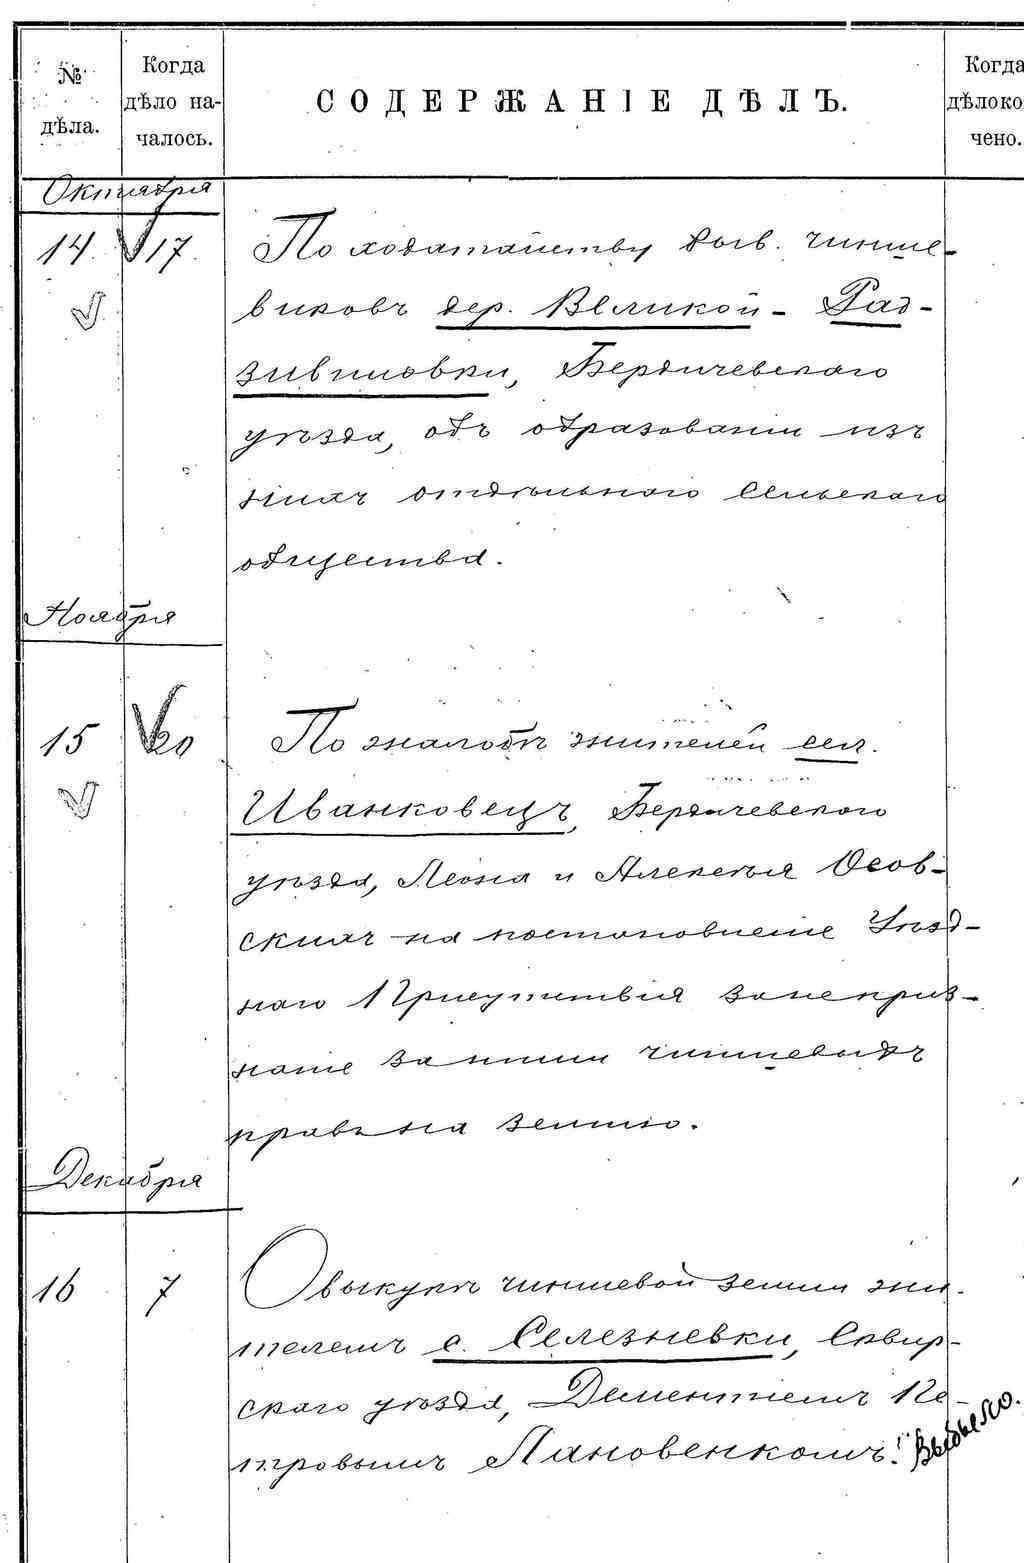 № дѣла.
Когда дѣло на-чалось.
СОДЕРЖАНІЕ ДѢЛЪ.
Когда дѣло ко чено.
Октября
14 17 По ходатайству быв. чинше-
виковъ дер. Великой - Рад-
зивиловки, Бердичевскаго
уѣзда, объ образованіи изъ
нихъ отдѣльнаго сельскаго
общества.
Ноября
15 20 По жалобѣ жителей сел.
Иванковецъ, Бердичевскаго
уѣзда, Леона и Алексѣя Осов-
скихъ на постановленіе Уѣзд-
наго Присутствія за неприз-
наніе за ними чиншевыхъ
правъ на землю.
Декабря
16 7 О выкупѣ чиншевой земли жи-
телемъ с. Селезневки, Сквир-
скаго уѣзда, Дементіемъ Пе-
тровымъ Лановенкомъ.